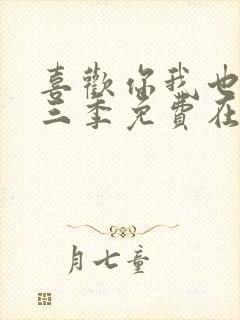 喜歡你我也
三季免費在
月七童